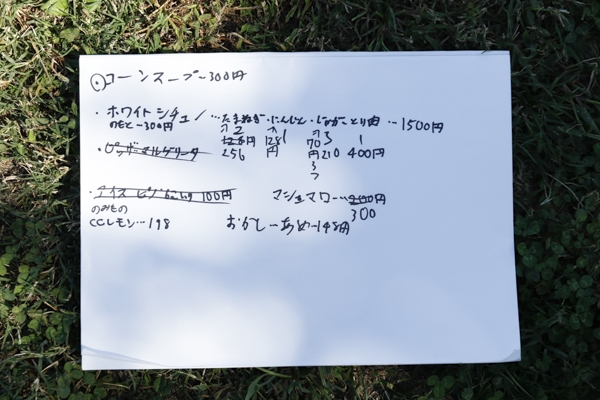 コーンスープ〜300円
・ホワイトシチュー…たまねぎ・にんじん・じゃが・とり肉…1500円
のもと〜300円
ヲ2 ヲ1 ヲ3 1
128円 128円 70円 210 400円
256
・ピッザ・マルゲリータ
・アイス 100円 マシュマロ…200円
のみもの 300
CCレモン…198 おかし…あめ〜148円